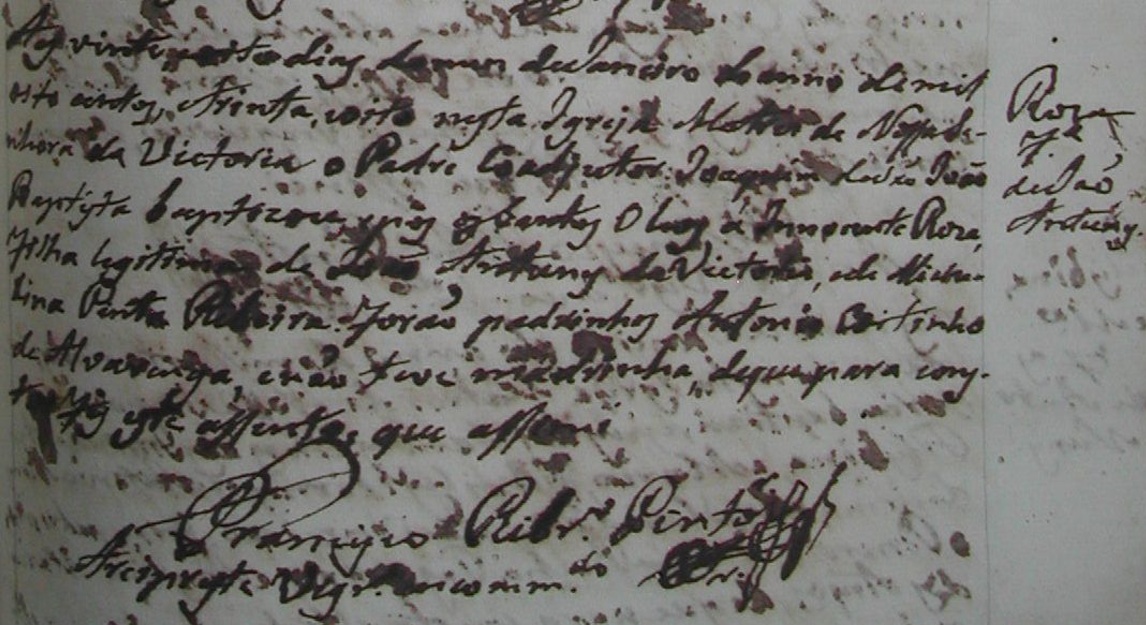 Aos vinte, e oito dias do mes de Janeiro do anno de mil
oito centos, e trinta, e oito nesta Igreja Matriz de Nossa Se-
nhora da Victoria o Padre Coadjutor Joaquim de São João
Baptista baptizou, e pôs os Santos Oleos a Innocente Roza,
Filha legitima de João Antunes da Victoria, e de Micha-
lina Pinta Ribeira. Forão padrinhos Antonio Coitinho
de Alvarenga, e não teve madrinha, de que para cons-
tar fiz este assento, que assinei
Francisco Ribr.º Pinto
Arcipreste Vigr.º encomm.do
Roza
F.a
de João
Antunes.